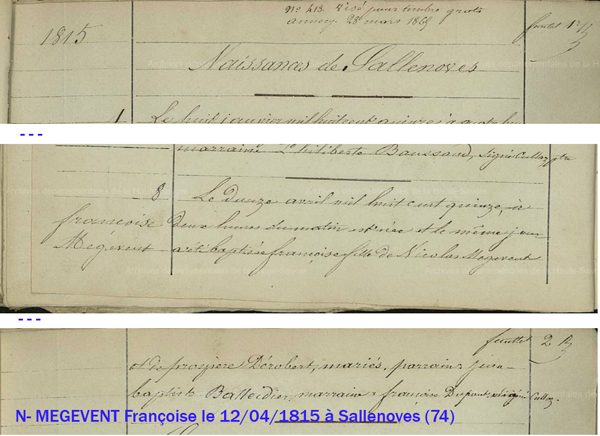 1815
n° 413 visé pour timbre gratis
annecy 28 mars 1865
feuillet 1
Naissances de Sallenoves
1
Le huit janvier mil huit cent quinze
- - -
marraine Philiberte Baussand, signé Cullaz
8
françoise
Mégevent
Le Douze avril mil huit cent quinze, à
deux heures du matin est née et le même jour
a été baptisée françoise fille de Nicolas Megevent
- - -
feuillet 2
et de prospere Dérobert, mariés, parrain jean
baptiste Balleidier, marraine françoise Dupont signé Cullaz
N- MEGEVENT Françoise le 12/04/1815 à Sallenoves (74)